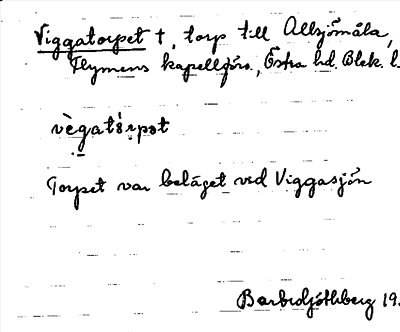 Viggatorpet †, torp till Allsjömåla,
Flymens kapellförs., Östra hd. Blek. l.
vègatórpət
Torpet var beläget vid Viggasjön
19